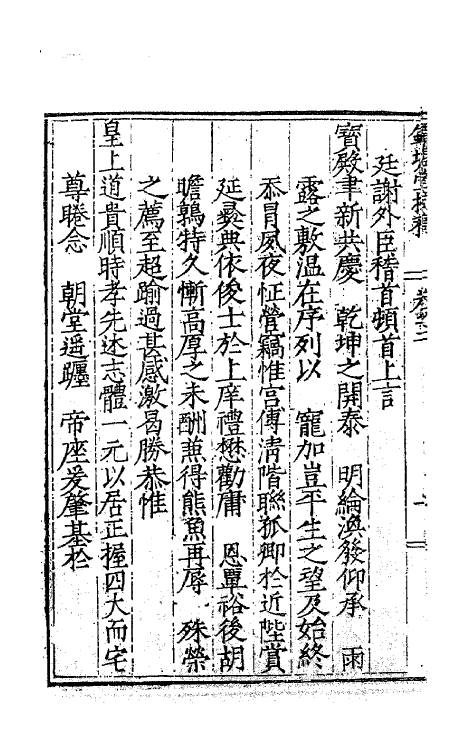 廷謝外臣稽首頓首上言
寶殿聿新共慶　乾坤之開泰　明綸渙發仰承　雨
露之敷溫在序列以　寵加豈平生之望及始終
忝冒夙夜怔營竊惟宮傳清階聯孤卿於近陛賞
延彛典依俊士於上庠禮懋勸庸　恩覃裕後胡
瞻鶉特久慚高厚之未酬兼得熊魚再辱　殊榮
之薦至超踰過甚感激曷勝恭惟
皇上道貴順時孝先述志體一元以居正握四大而宅
尊睠念　朝堂遥躔　帝座爰肇基於